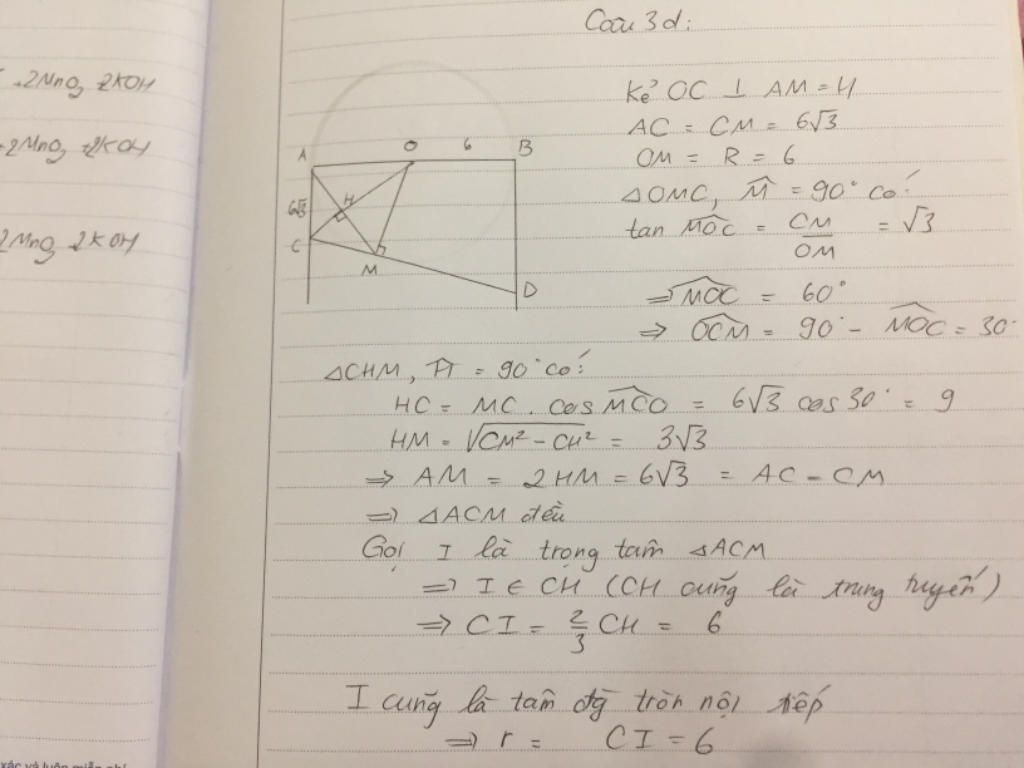 Câu 3d:
+2MnO2 +2KOH
+2MnO2 +2KOH
2MnO2 2KOH
A O 6 B
6√3 H
C
M
D
Kẻ OC ⊥ AM = H
AC = CM = 6√3
OM = R = 6
△OMC, M̂ = 90° có:
tan MOC = CM/OM = √3
⇒ MOC = 60°
⇒ OCM = 90° - MOC = 30°
△CHM, Ĥ = 90° có:
HC = MC . cos MCO = 6√3 cos 30° = 9
HM = √(CM² - CH²) = 3√3
⇒ AM = 2HM = 6√3 = AC = CM
⇒ △ACM đều
Gọi I là trọng tam △ACM
⇒ I ∈ CH (CH cũng là trung tuyến)
⇒ CI = 2/3 CH = 6
I cũng là tâm đg tròn nội tiếp
⇒ r = CI = 6
xác và luôn miễn phí